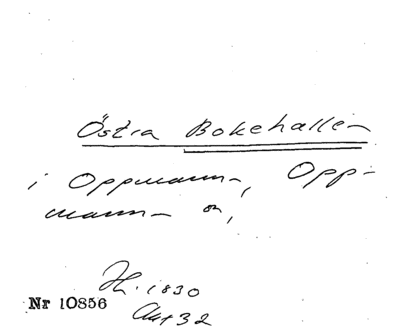 Östra Bokehallen
i Oppmanna, Opp-
manna sn,
H. 1830
Nr 10856
Akt 32